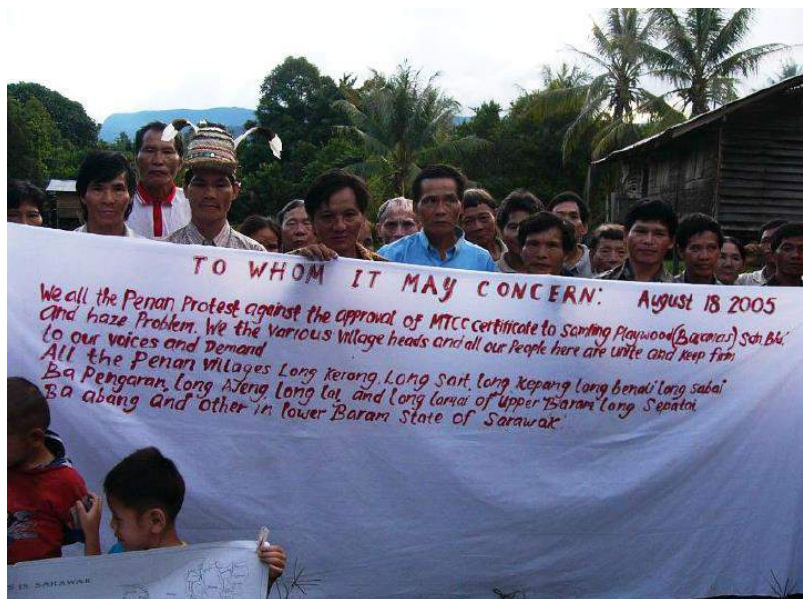 TO WHOM IT MAY CONCERN: August 18 2005
We all the Penan Protest against the approval of MTCC certificate to Samling Playwood (Baramas) Sdn Bhd.
and haze Problem. We the various village heads and all our People here are unite and keep firm
to our voices and Demand
All the Penan villages Long Kerong, Long Sait, Long Kepang long benali long sabai
Ba Pengaran, Long Ajeng, long lai, and long lamai of upper Baram long Sepatai,
Ba abang and other in lower Baram State of Sarawak
IS SARAWAK